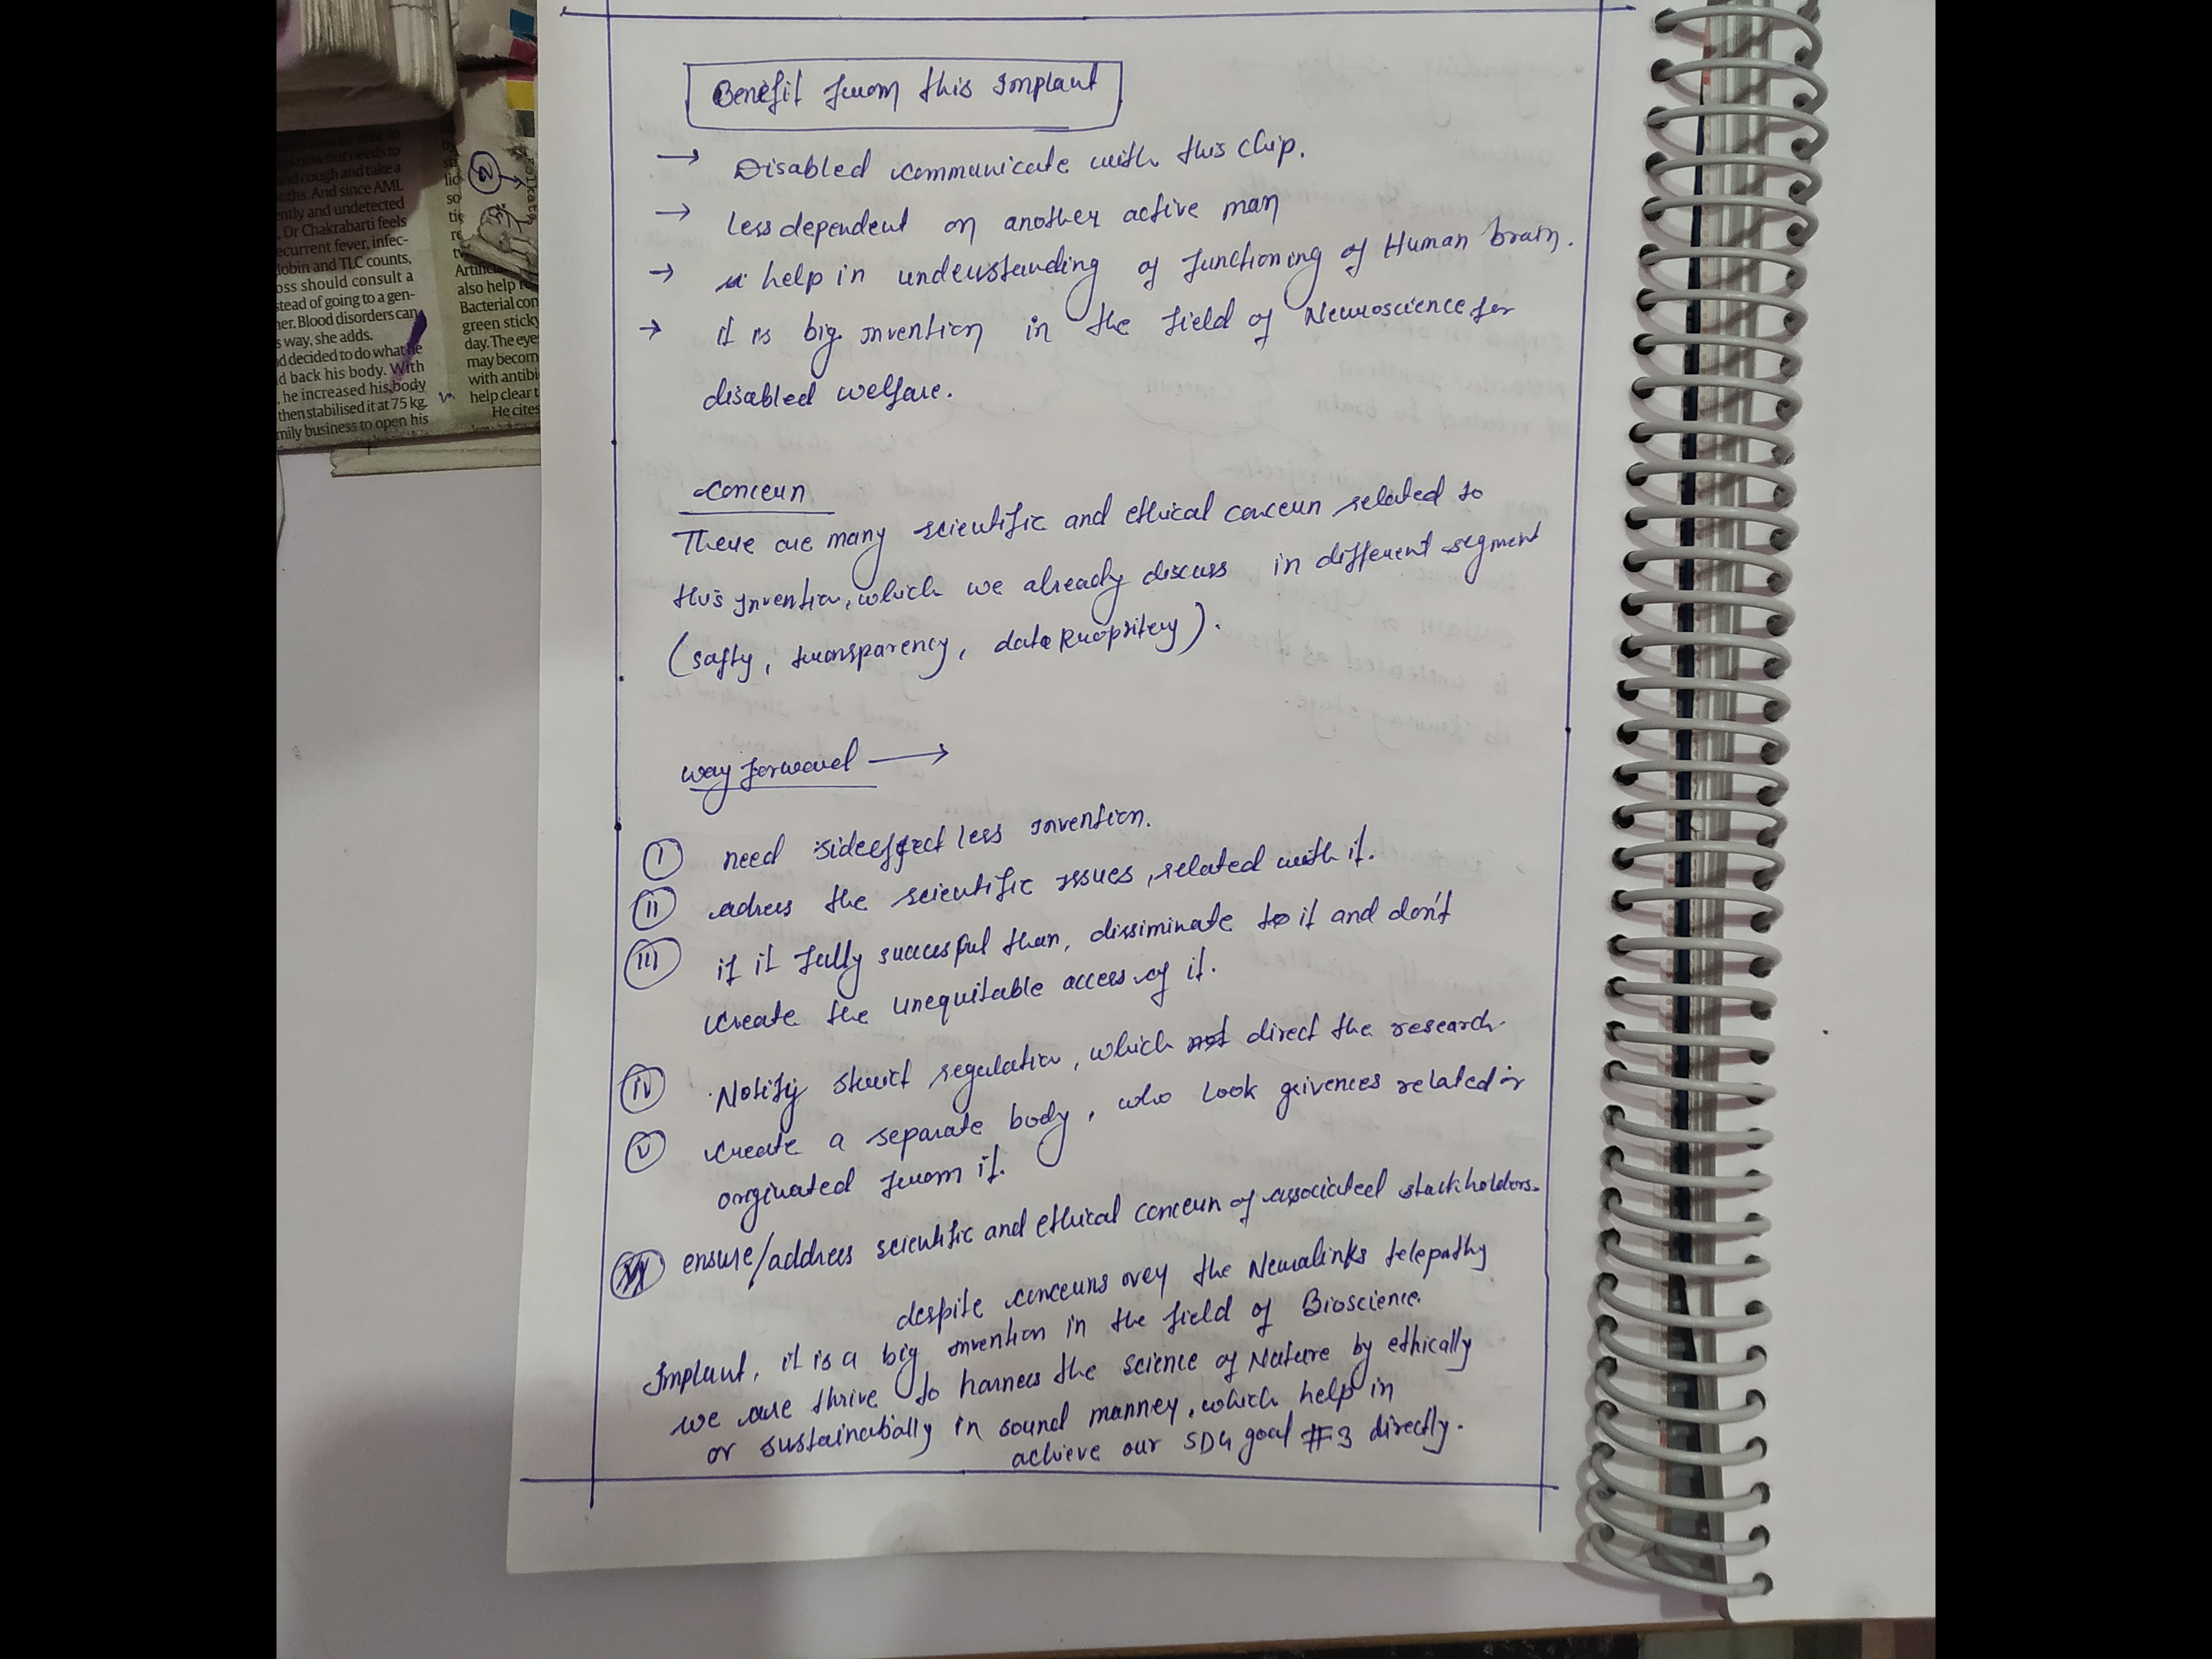 Benefit from this Implant
→ Disabled communicate with this chip.
→ less dependent on another active man
→ help in understanding of functioning of Human brain.
→ it is big invention in the field of Neuroscience for
disabled welfare.
concern
There are many scientific and ethical concern related to
this invention, which we already discuss in different segment
(safty, transparency, data Propritery).
way forward →
I need sideeffect less invention.
II adress the scientific issues, related with it.
III if it fully successful than, dissiminate to it and don't
create the unequitable access of it.
IV Notify strict regulation, which not direct the research.
V create a separate body, who look grivences related or
originated from it.
VI ensure/address scientific and ethical concern of associated stackholders.
despite concerns over the Neuralinks telepathy
Implant, it is a big invention in the field of Bioscience.
we are thrive to harness the science of Nature by ethically
or sustainabally in sound manner, which help in
achieve our SDG goal #3 directly.
now but needs to
and cough and take a
ths. And since AML
ently and undetected
, Dr Chakrabarti feels
ecurrent fever, infec-
lobin and TLC counts,
oss should consult a
stead of going to a gen-
ner. Blood disorders can
s way, she adds.
d decided to do what he
d back his body. With
, he increased his body
then stabilised it at 75 kg.
mily business to open his
2
Artific
also help
Bacterial con
green sticky
day. The eye
may becom
with antibi
help clear t
He cites